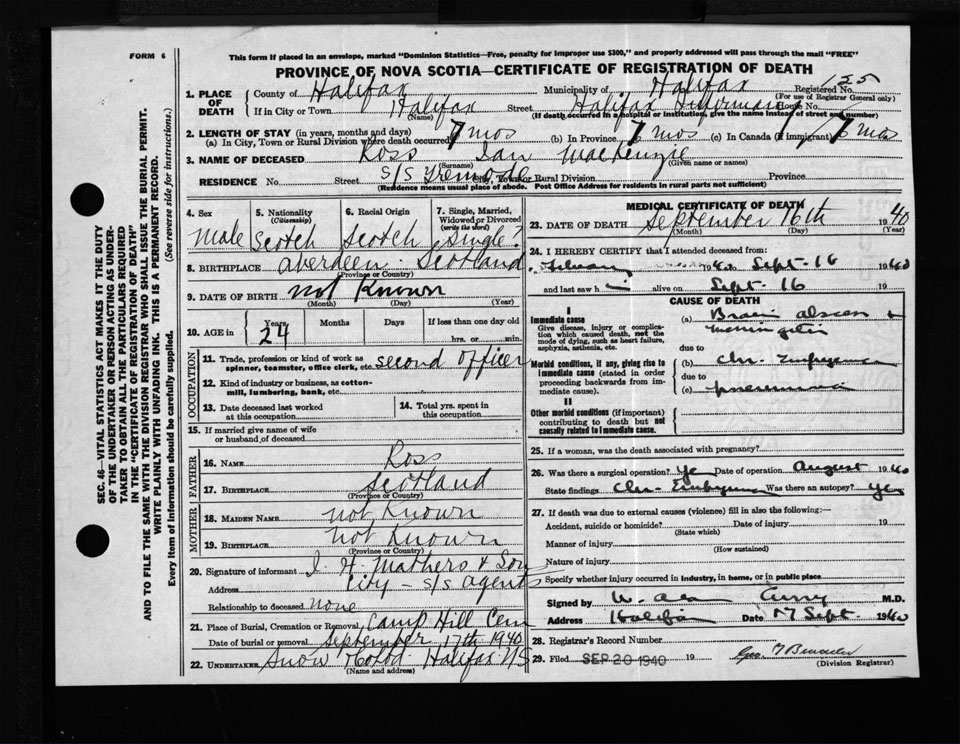 FORM 6
This form if placed in an envelope, marked "Dominion Statistics—Free, penalty for improper use $300," and properly addressed will pass through the mail "FREE"
PROVINCE OF NOVA SCOTIA—CERTIFICATE OF REGISTRATION OF DEATH
SEC. 46—VITAL STATISTICS ACT MAKES IT THE DUTY
OF THE UNDERTAKER OR PERSON ACTING AS UNDER-
TAKER TO OBTAIN ALL THE PARTICULARS REQUIRED
IN THE "CERTIFICATE OF REGISTRATION OF DEATH"
AND TO FILE THE SAME WITH THE DIVISION REGISTRAR WHO SHALL ISSUE THE BURIAL PERMIT.
WRITE PLAINLY WITH UNFADING INK. THIS IS A PERMANENT RECORD.
Every item of information should be carefully supplied. (See reverse side for instructions.)
1. PLACE OF DEATH
County of Halifax Municipality of Halifax Registered No. 155
(For use of Registrar General only)
If in City or Town Halifax Street Halifax Infirmary House No.
(Name) (If death occurred in a hospital or institution, give the name instead of street and number)
2. LENGTH OF STAY (in years, months and days)
(a) In City, Town or Rural Division where death occurred 7 mos (b) In Province 7 mos (c) In Canada (if immigrant) 7 mos
3. NAME OF DECEASED Ross Ian MacKenzie
(Surname) (Given name or names)
RESIDENCE No. Street S/S City, Town or Rural Division Province
(Residence means usual place of abode. Post Office Address for residents in rural parts not sufficient)
4. Sex 5. Nationality (Citizenship) 6. Racial Origin 7. Single, Married, Widowed or Divorced (write the word)
Male Scotch Scotch Single?
8. BIRTHPLACE Aberdeen Scotland
(Province or Country)
9. DATE OF BIRTH not Known
(Month) (Day) (Year)
10. AGE in Years Months Days If less than one day old
24 hrs. or min.
OCCUPATION
11. Trade, profession or kind of work as spinner, teamster, office clerk, etc. second officer
12. Kind of industry or business, as cotton-mill, lumbering, bank, etc.
13. Date deceased last worked at this occupation 14. Total yrs. spent in this occupation
15. If married give name of wife or husband of deceased
FATHER
16. NAME Ross
17. BIRTHPLACE Scotland
(Province or Country)
MOTHER
18. MAIDEN NAME not Known
19. BIRTHPLACE not Known
(Province or Country)
20. Signature of informant I. H. Mathers & Son
Address City - S/S agents
Relationship to deceased None
21. Place of Burial, Cremation or Removal Camp Hill Cem
Date of burial or removal September 17th 1940
22. UNDERTAKER Snow Halifax NS
(Name and address)
MEDICAL CERTIFICATE OF DEATH
23. DATE OF DEATH September 16th 1940
(Month) (Day) (Year)
24. I HEREBY CERTIFY that I attended deceased from:
1940 to Sept-16 1940
and last saw h i alive on Sept-16 19
CAUSE OF DEATH
I
Immediate cause
Give disease, injury or complication which caused death, not the mode of dying, such as heart failure, asphyxia, asthenia, etc.
(a) Brain abscess &
due to
Morbid conditions, if any, giving rise to immediate cause (stated in order proceeding backwards from immediate cause).
(b) Chr. Empyema
due to
(c) pneumonia
II
Other morbid conditions (if important) contributing to death but not causally related to immediate cause.
25. If a woman, was the death associated with pregnancy?
26. Was there a surgical operation? Yes Date of operation August 1940
State findings Chr. Empyema Was there an autopsy? yes
27. If death was due to external causes (violence) fill in also the following:—
Accident, suicide or homicide? Date of injury 19
(State which)
Manner of injury
(How sustained)
Nature of injury
Specify whether injury occurred in industry, in home, or in public place
Signed by W. Alan Curry M.D.
Address Halifax Date 17 Sept 1940
28. Registrar's Record Number
29. Filed SEP 20 1940 19 Geo.
(Division Registrar)